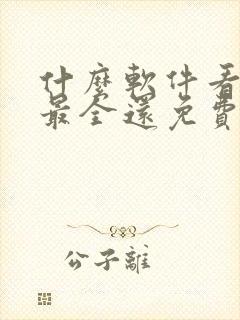 什麼軟件看
最全還免費
公子離